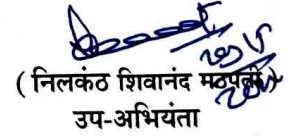 ( निलकंठ शिवानंद मठपती )
उप-अभियंता